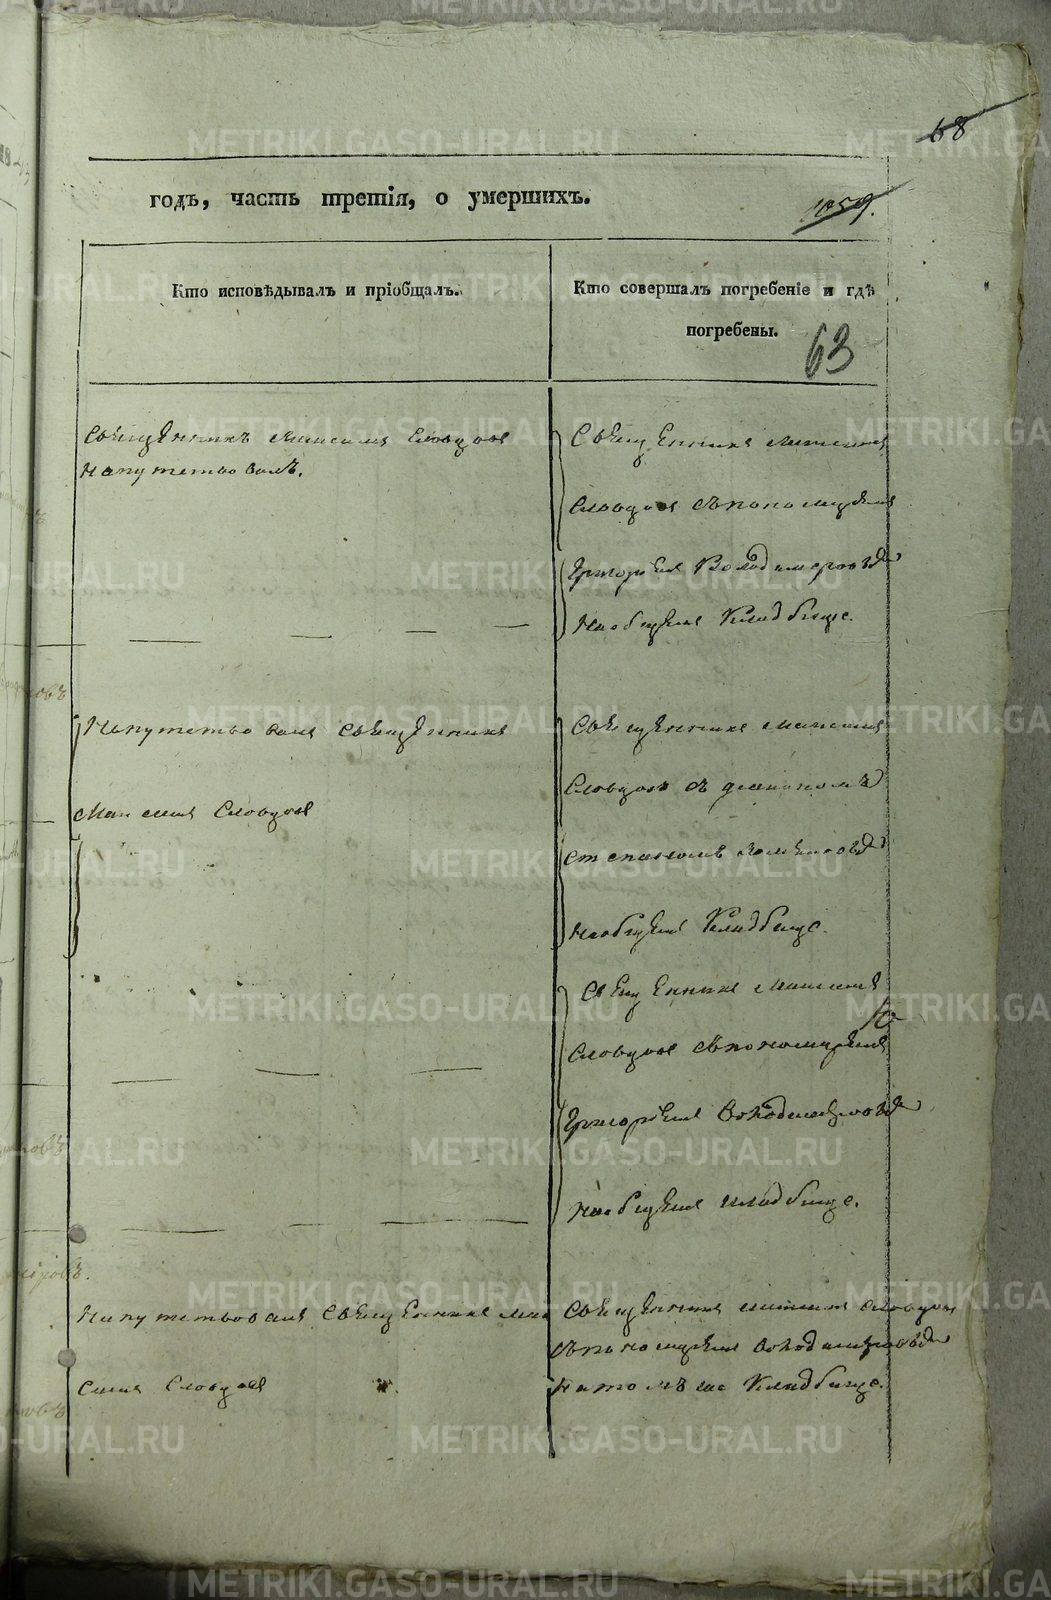 68
годъ, часть третія, о умершихъ.
1059.
Кто исповѣдывалъ и пріобщалъ.
Кто совершалъ погребеніе и гдѣ
погребены.
63
Священникъ Максимъ Словцовъ
напутствовалъ.
Священникъ Максимъ
Словцовъ съ пономаремъ
Григорiемъ
на общемъ Кладбище.
Напутствовалъ Священникъ
Максимъ Словцовъ
Священникъ Максимъ
Словцовъ съ
Степаномъ
на общемъ Кладбище.
Священникъ Максимъ
Словцовъ съ пономаремъ
Григорiемъ
на общемъ кладбище.
Напутствовалъ Священникъ Мак
симъ Словцовъ
Священникъ Максимъ Словцовъ
съ пономаремъ
на томъ же Кладбище.
METRIKI.GASO-URAL.RU